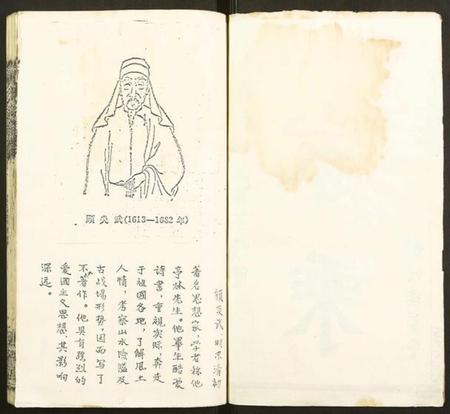 顾炎武(1613—1682年)
顾炎武，明末清初
著名思想家，学者称他
亭林先生。他毕生酷爱
诗书，重视实际，奔走
于祖国各地，了解风土
人情，考察山水险隘及
古战场形势，因而写了
不少著作。他具有强烈的
爱国主义思想，其影响
深远。